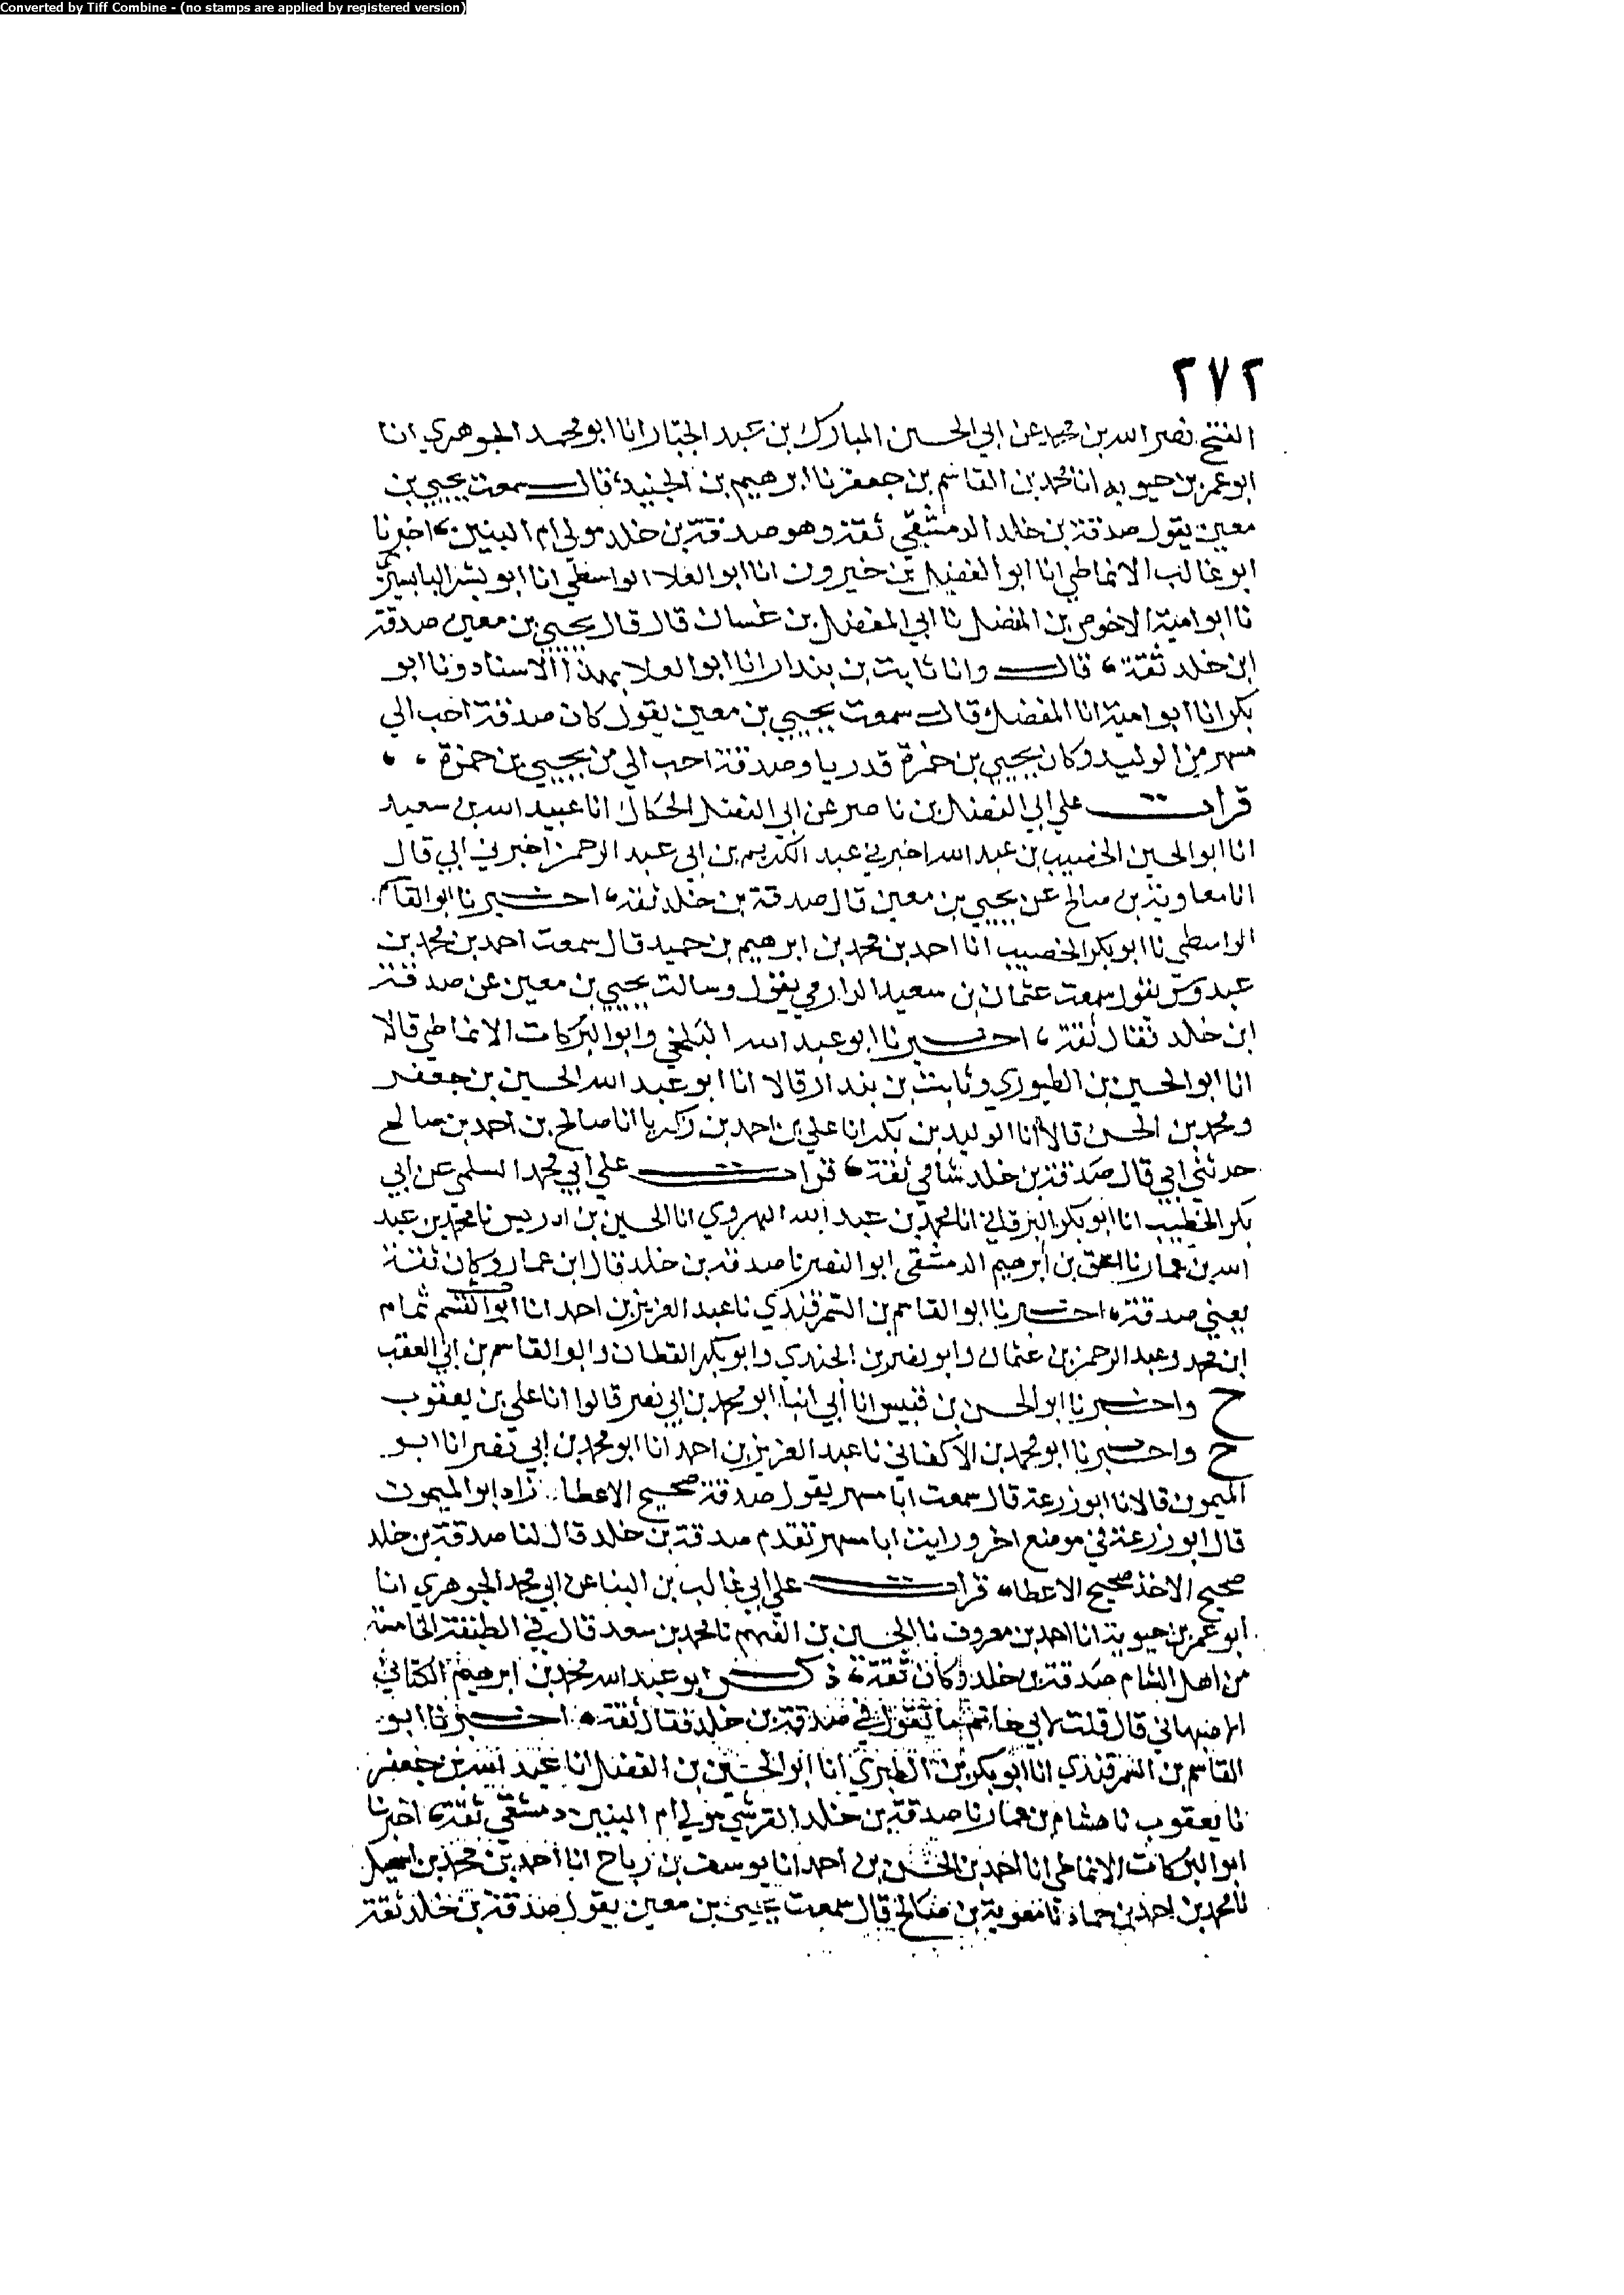 Converted by Tiff Combine - (no stamps are applied by registered version)
٢٧٢
الفتح نصر الله بن محمد عن ابي الحسين المبارك بن عبد الجبار انا ابو محمد الجوهري انا
ابو عمر بن حيويه انا محمد بن القاسم بن جعفر نا ابرهيم بن الجنيد قال سمعت يحيى بن
معين يقول صدقة بن خالد الدمشقي ثقة وهو صدقة بن خلد مولى ام البنين اخبرنا
ابو غالب الانماطي انا ابو الفضل بن خيرون انا ابو العلا الواسطي انا ابو بشر البابسيري
نا ابو امية الاخوص بن المفضل نا ابي المفضل بن غسان قال قال يحيى بن معين صدقة
ابن خلد ثقة قال وانا ثابت بن بندار انا ابو العلا بهذا الاسناد ونا ابو
بكر انا ابو امية انا المفضل قال سمعت يحيى بن معين يقول كان صدقة احب الي
مسهر من الوليد وكان يحيى بن حمزة قدريا وصدقة احب الي من يحيى بن حمزة
قرات على ابي الفضل بن ناصر عن ابي الفضل الحكاك انا عبيد الله بن سعيد
انا ابو الحسين الخصيب بن عبد الله اخبرني عبد الكريم بن ابي عبد الرحمن اخبرني ابي قال
انا معاوية بن صالح عن يحيى بن معين قال صدقة بن خلد ثقة اخبرنا ابو القاسم
الواسطي نا ابو بكر الخصيب انا احمد بن محمد بن ابرهيم بن حميد قال سمعت احمد بن محمد بن
عبدوس يقول سمعت عثمان بن سعيد الدارمي يقول وسالت يحيى بن معين عن صدقة
ابن خالد فقال ثقة اخبرنا ابو عبد الله البلخي وابو البركات الانماطي قالا
انا ابو الحسين بن الطيوري وثابت بن بندار قالا انا ابو عبد الله الحسين بن جعفر
ومحمد بن الحسن قالا انا الوليد بن بكر انا علي بن احمد بن زكريا انا صالح بن احمد بن صالح
حدثني ابي قال صدقة بن خلد شامي ثقة قرات على ابي محمد السلمي عن ابي
بكر الخطيب انا ابو بكر البرقاني انا محمد بن عبد الله الهروي انا الحسين بن ادريس نا محمد بن عبد
الله بن عمار نا اسحق بن ابرهيم الدمشقي ابو النضر نا صدقة بن خلد قال ابن عمار وكان ثقة
يعني صدقة اخبرنا ابو القاسم بن السمرقندي نا عبد العزيز بن احمد انا ابو القسم تمام
ابن محمد وعبد الرحمن بن عثمان وابو نصر بن الجندي وابو بكر القطان وابو القاسم بن ابي العقب
ح واخبرنا ابو الحسن بن قبيس انا ابي انبا ابو محمد بن ابي نصر قالوا انا علي بن يعقوب
ح واخبرنا ابو محمد بن الاكفاني نا عبد العزيز بن احمد انا ابو محمد بن ابي نصر انا ابو
الميمون قالا نا ابو زرعة قال سمعت ابا مسهر يقول صدقة صحيح الاعطا زاد ابو الميمون
قال ابو زرعة في موضع اخر ورايت ابا مسهر تقدم صدقة بن خلد قال لنا صدقة بن خلد
صحيح الاخذ صحيح الاعطا قرات على ابي غالب بن البنا عن ابي محمد الجوهري انا
ابو عمر بن حيويه انا احمد بن معروف نا الحسين بن الفهم نا محمد بن سعد قال في الطبقة الخامسة
من اهل الشام صدقة بن خلد وكان ثقة ذكر ابو عبد الله محمد بن ابرهيم الكتاني
الاصبهاني قال قلت لابي حاتم ما تقول في صدقة بن خلد فقال ثقة اخبرنا ابو
القاسم بن السمرقندي انا ابو بكر بن الطبري انا ابو الحسين بن الفضل انا عبد الله بن جعفر
نا يعقوب نا هشام بن عمار نا صدقة بن خلد القرشي مولى ام البنين دمشقي ثقة اخبرنا
ابو البركات الانماطي انا احمد بن الحسن بن احمد انا يوسف بن رباح انا احمد بن محمد بن اسمعيل
نا محمد بن احمد بن حماد نا معوية بن صالح قال سمعت يحيى بن معين يقول صدقة بن خلد ثقة